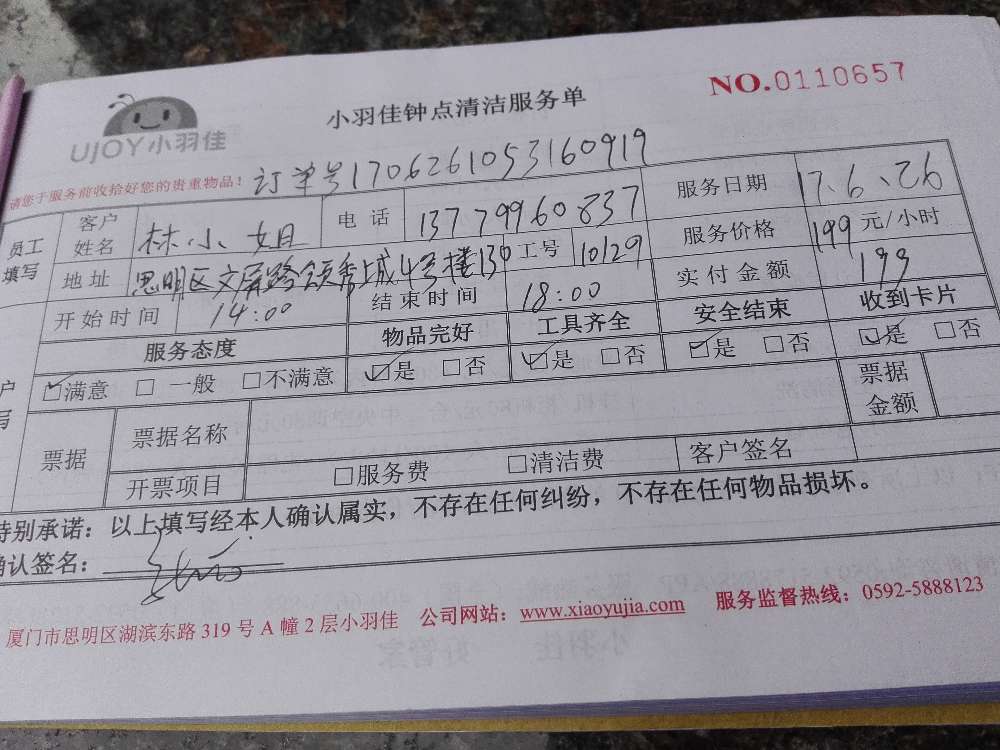 NO.0110657
小羽佳钟点清洁服务单
UJOY小羽佳
请您于服务前收拾好您的贵重物品！ 订单号1706261053160919
员工填写 客户姓名 林小姐 电话 13779960837 服务日期 17.6、26
地址 思明区文屏路领秀城4号楼130 工号 10129 服务价格 199 元/小时
开始时间 14:00 结束时间 18:00 实付金额 199
服务态度 物品完好 工具齐全 安全结束 收到卡片
☑满意 □ 一般 □不满意 ☑是 □否 ☑是 □否 ☑是 □否 ☑是 □否
票据 票据名称 票据金额
开票项目 □服务费 □清洁费 客户签名
特别承诺：以上填写经本人确认属实，不存在任何纠纷，不存在任何物品损坏。
确认签名：
厦门市思明区湖滨东路 319 号 A 幢 2 层小羽佳 公司网站：www.xiaoyujia.com 服务监督热线：0592-5888123